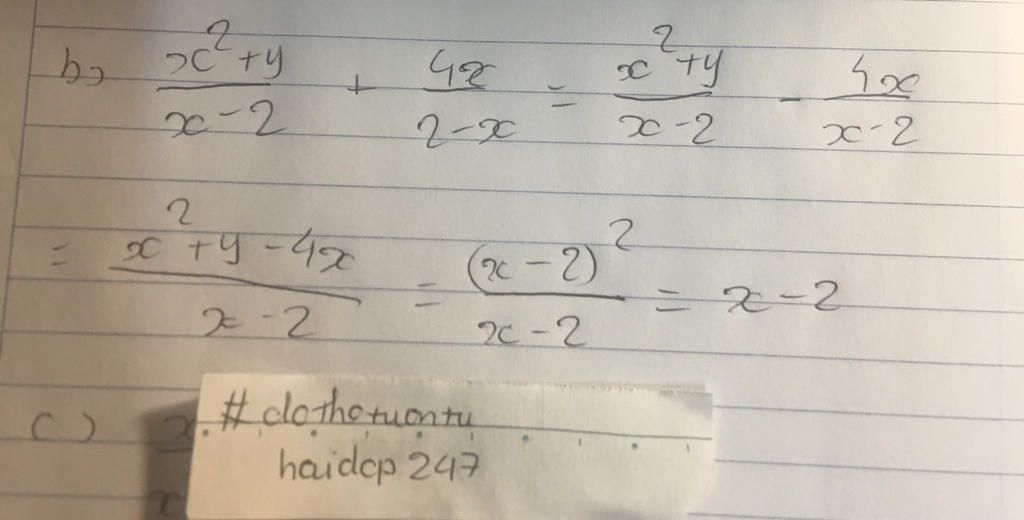 b) x²+y/x-2 + 4x/2-x = x²+y/x-2 - 4x/x-2
= x²+y-4x/x-2 = (x-2)²/x-2 = x-2
c) x
x
#dothetuontu
haidcp247